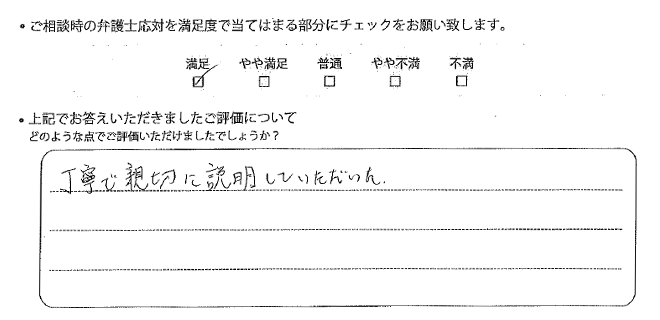 ・ご相談時の弁護士応対を満足度で当てはまる部分にチェックをお願い致します。
満足 やや満足 普通 やや不満 不満
☑ □ □ □ □
・上記でお答えいただきましたご評価について
どのような点でご評価いただけましたでしょうか？
丁寧で親切に説明していただいた.